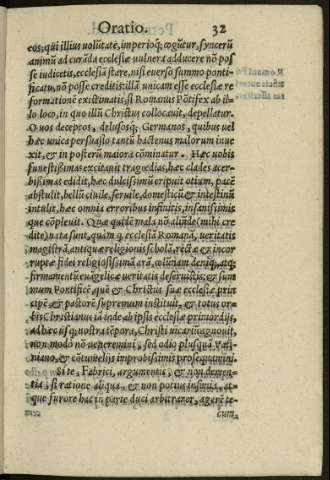 Oratio. 32
eos, qui illius volũtate, imperioq; cogũtur, syncerũ
animũ ad curãda ecclesiæ vulnera adducere nõ pos
se iudicetis, ecclesiã stare, nisi euerso summo ponti-
ficatu, nõ posse creditis: illã unicam esse ecclesiæ re
formationē existimatis, si Romanus Põtifex ab il-
lo loco, in quo illũ Christus collocauit, depellatur.
O uos deceptos, delusosq; Germanos, quibus uel
hæc unica persuasio tantũ hactenus malorum inue
xit, & in posterũ maiora cõminatur. Hæc uobis
funestissimas excitauit tragœdias, hæc clades acer-
bissimas edidit, hæc dulcissimũ eripuit otium, pacē
abstulit, bellũ ciuile, seruile, domesticũ & intestinũ
intulit, hæc omnia erroribus infinitis, insanissimis
que cõpleuit. Quæ quidē mala nõ aliũde (mihi cre
dite) nata sunt, quàm q̃ ecclesiã Romanã, veritatis
magistrã, antiquæ religionis scholã, rectæ & incor
ruptæ fidei religiosissimã arã, colũnam deniq; atq;
firmamentũ euãgelicæ ueritatis deseruistis: & sum
mum Pontificē quē & Christus suæ ecclesiæ prin
cipē & pastorē supremum instituit, & totus or-
bis Christianus iã inde ab ipsis ecclesiæ primordijs,
ad hæc usq; nostra tēpora, Christi uicariũ agnouit,
non modò nõ ueneremini, sed odio plusquã Vati-
niano, & cõtumelijs improbissimis prosequamini.
Si te, Fabrici, argumentis, & non demen-
tia, si ratione aliqua, & non potius insania, at-
que furore hac in parte duci arbitrarer, agerē te-
cum,